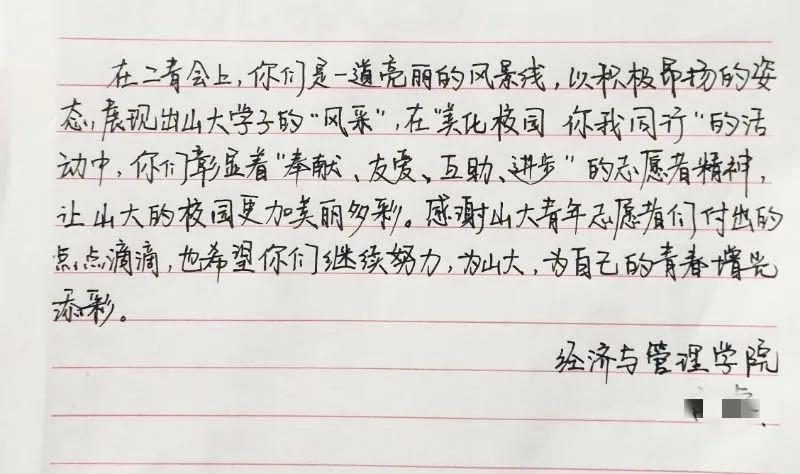 在二青会上，你们是一道亮丽的风景线，以积极昂扬的姿
态，展现出山大学子的“风采”，在“美化校园 你我同行”的活
动中，你们彰显着“奉献、友爱、互助、进步”的志愿者精神，
让山大的校园更加美丽多彩。感谢山大青年志愿者们付出的
点点滴滴，也希望你们继续努力，为山大，为自己的青春增光
添彩。
经济与管理学院